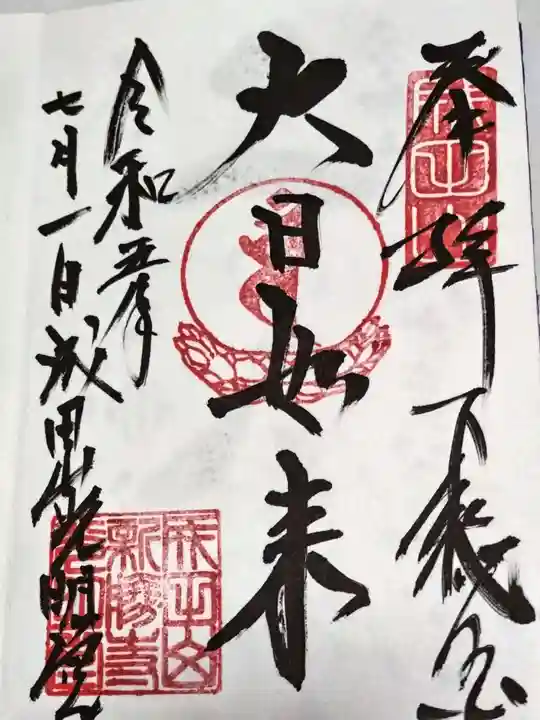 奉拝 下総國
大日如来
令和五年
七月一日成田山光明堂
成田山
成田山
新勝寺